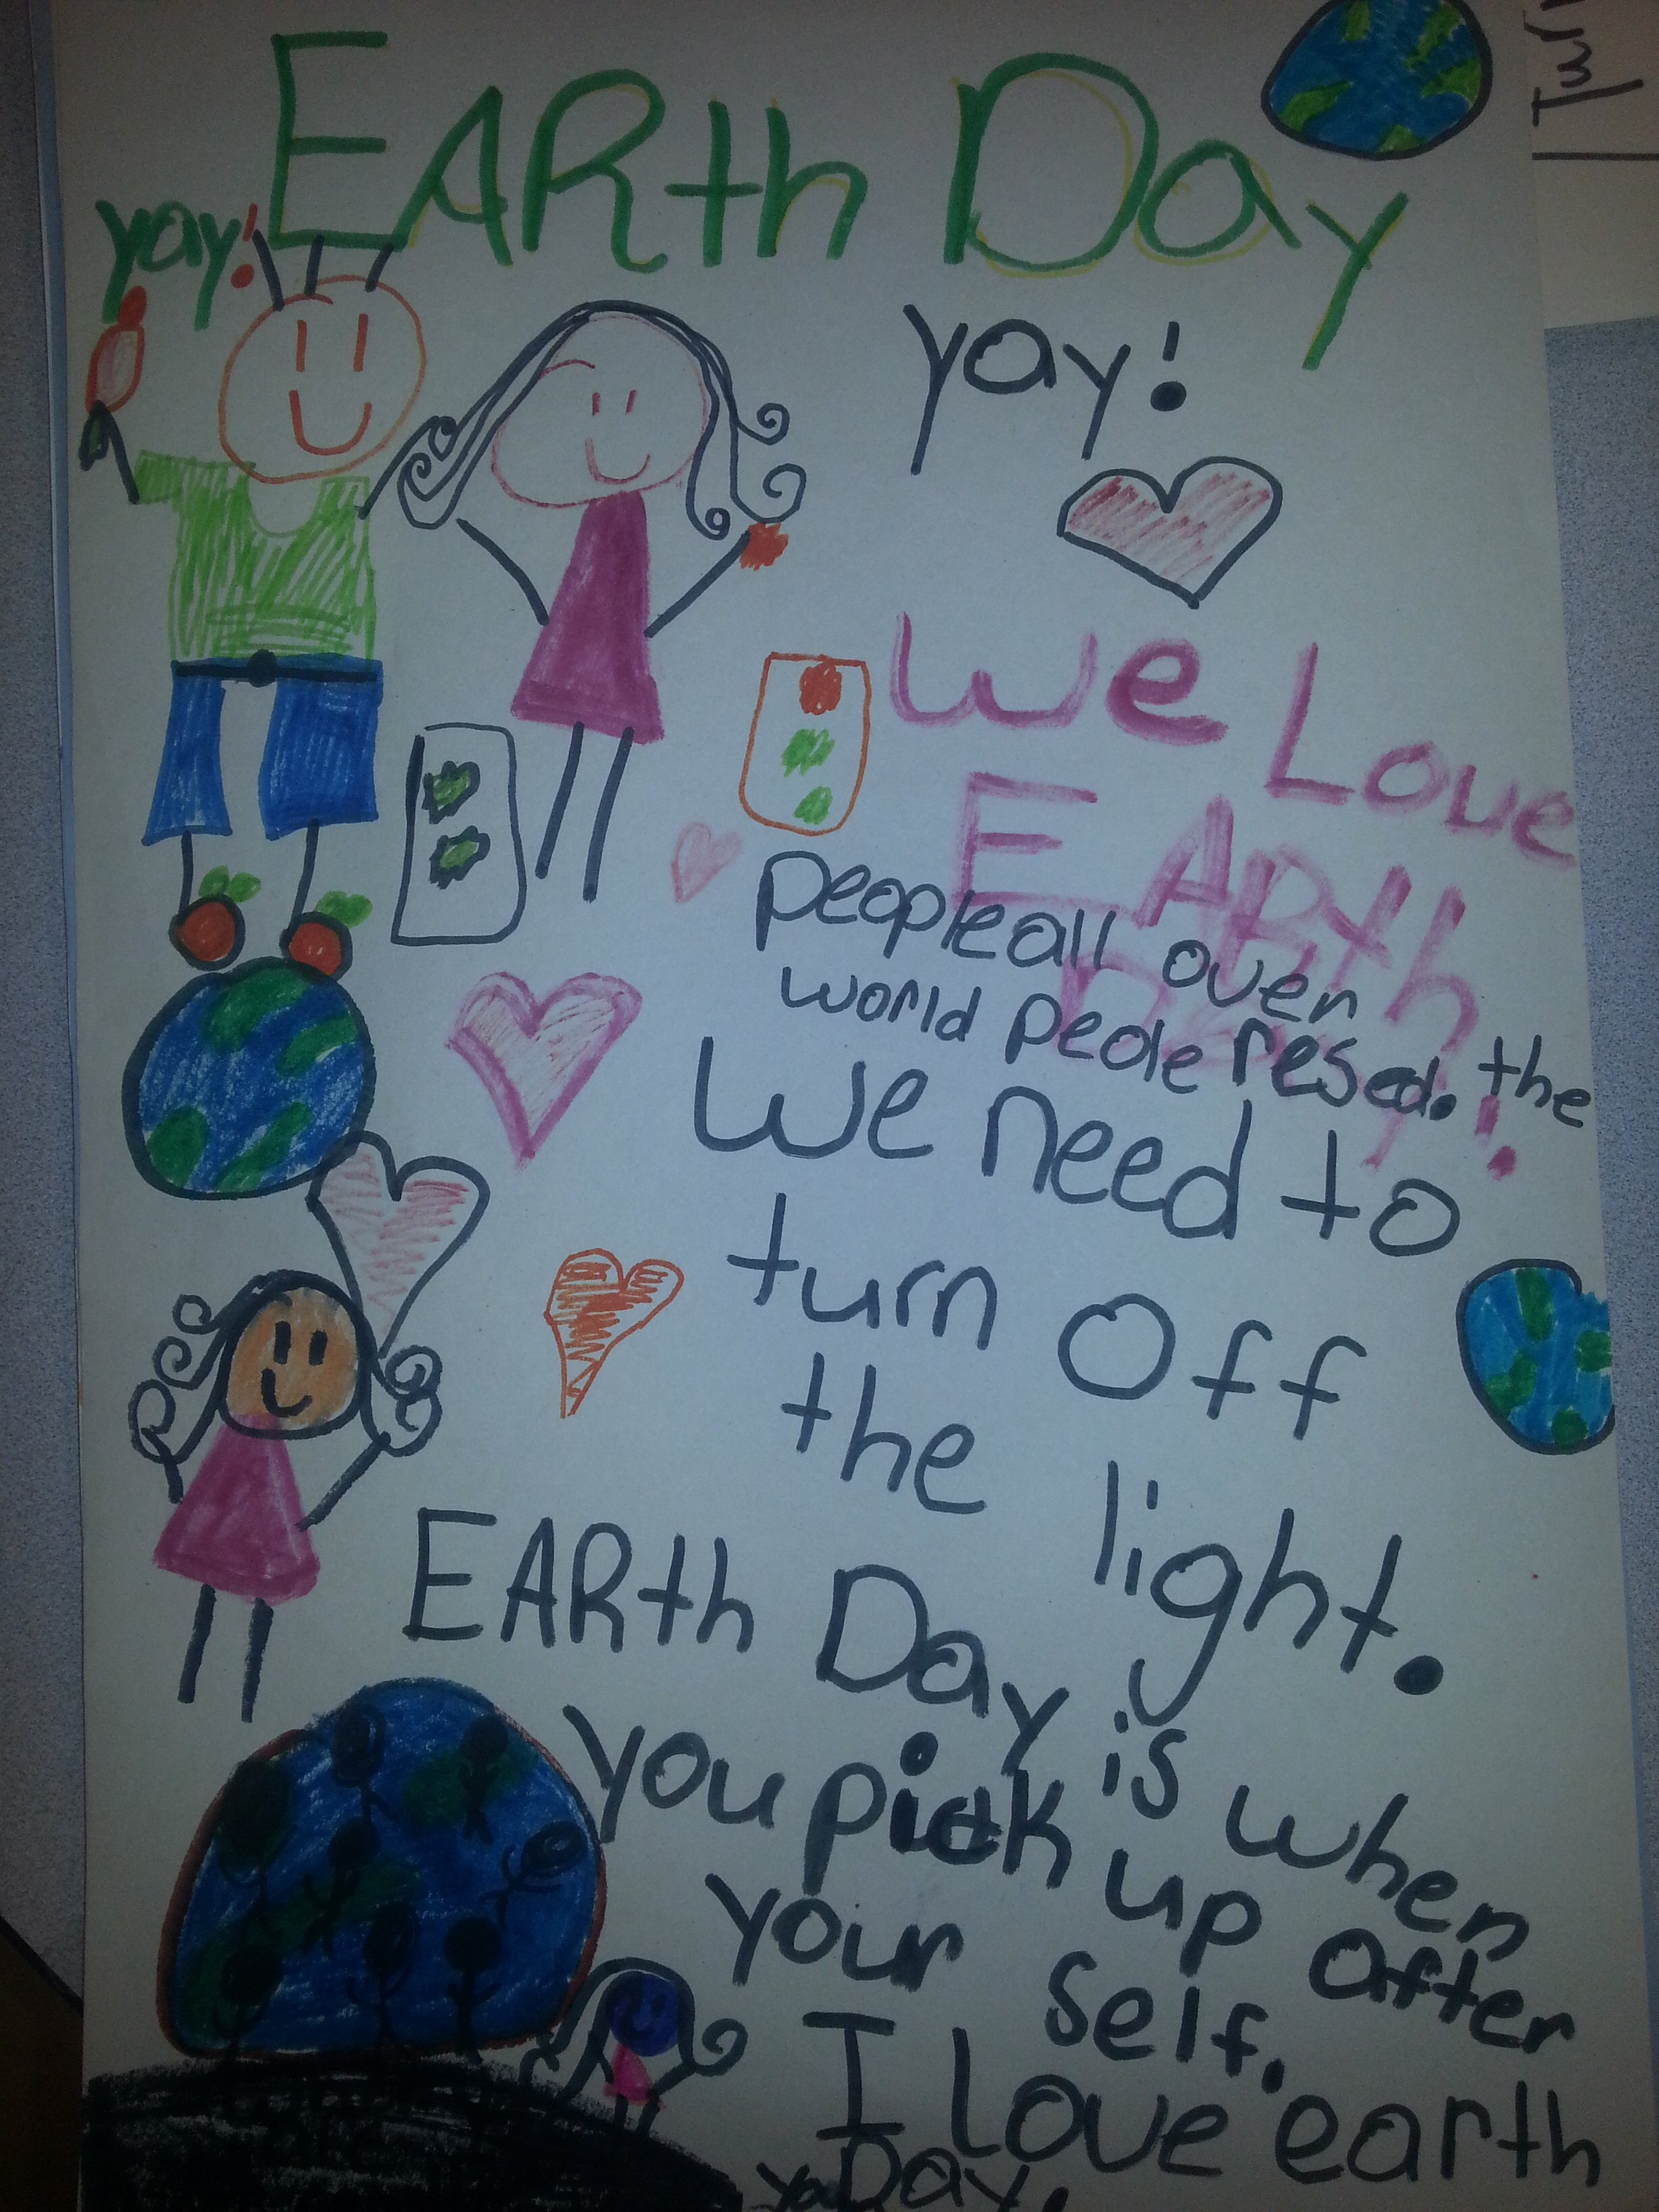 EARth Day
yay!
yay!
We Love
EARth
Day!
people all over the
world peole resed.
We need to
turn off
the light.
EARth Day is when
you pick up after
your self.
I love earth
Day.
Turn